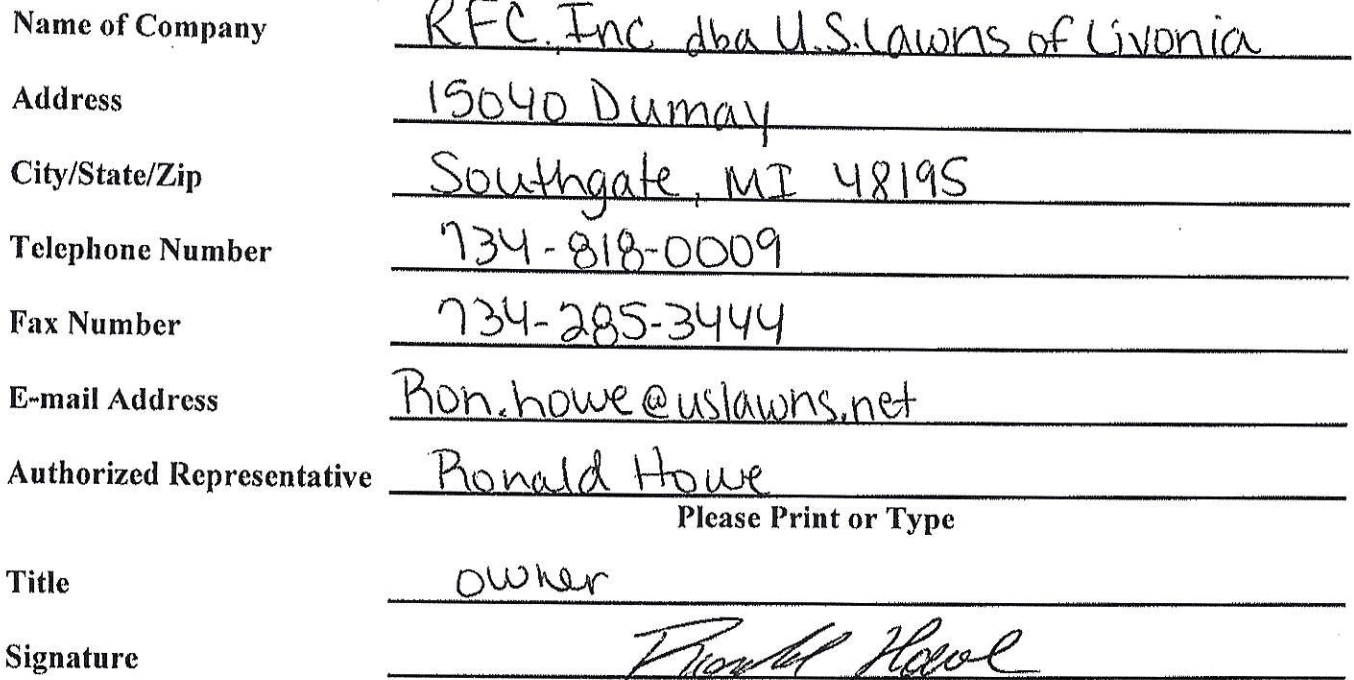 Name of Company RFC. Inc dba U.S. Lawns of Livonia
Address 15040 Dumay
City/State/Zip Southgate, MI 48195
Telephone Number 734-818-0009
Fax Number 734-285-3444
E-mail Address Ron.howe@uslawns.net
Authorized Representative Ronald Howe
Please Print or Type
Title owner
Signature Ronald Howe